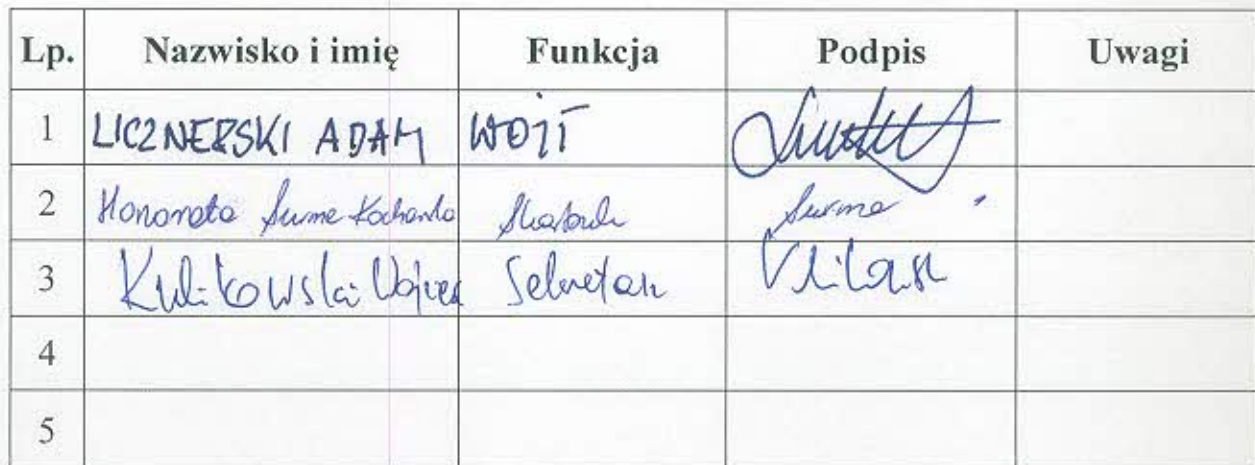 Lp. Nazwisko i imię Funkcja Podpis Uwagi
1 LICZNERSKI ADAM WÓJT
2 Honorata Surma Skarbnik Surma
3 Kulikowski Sekretarz
4
5